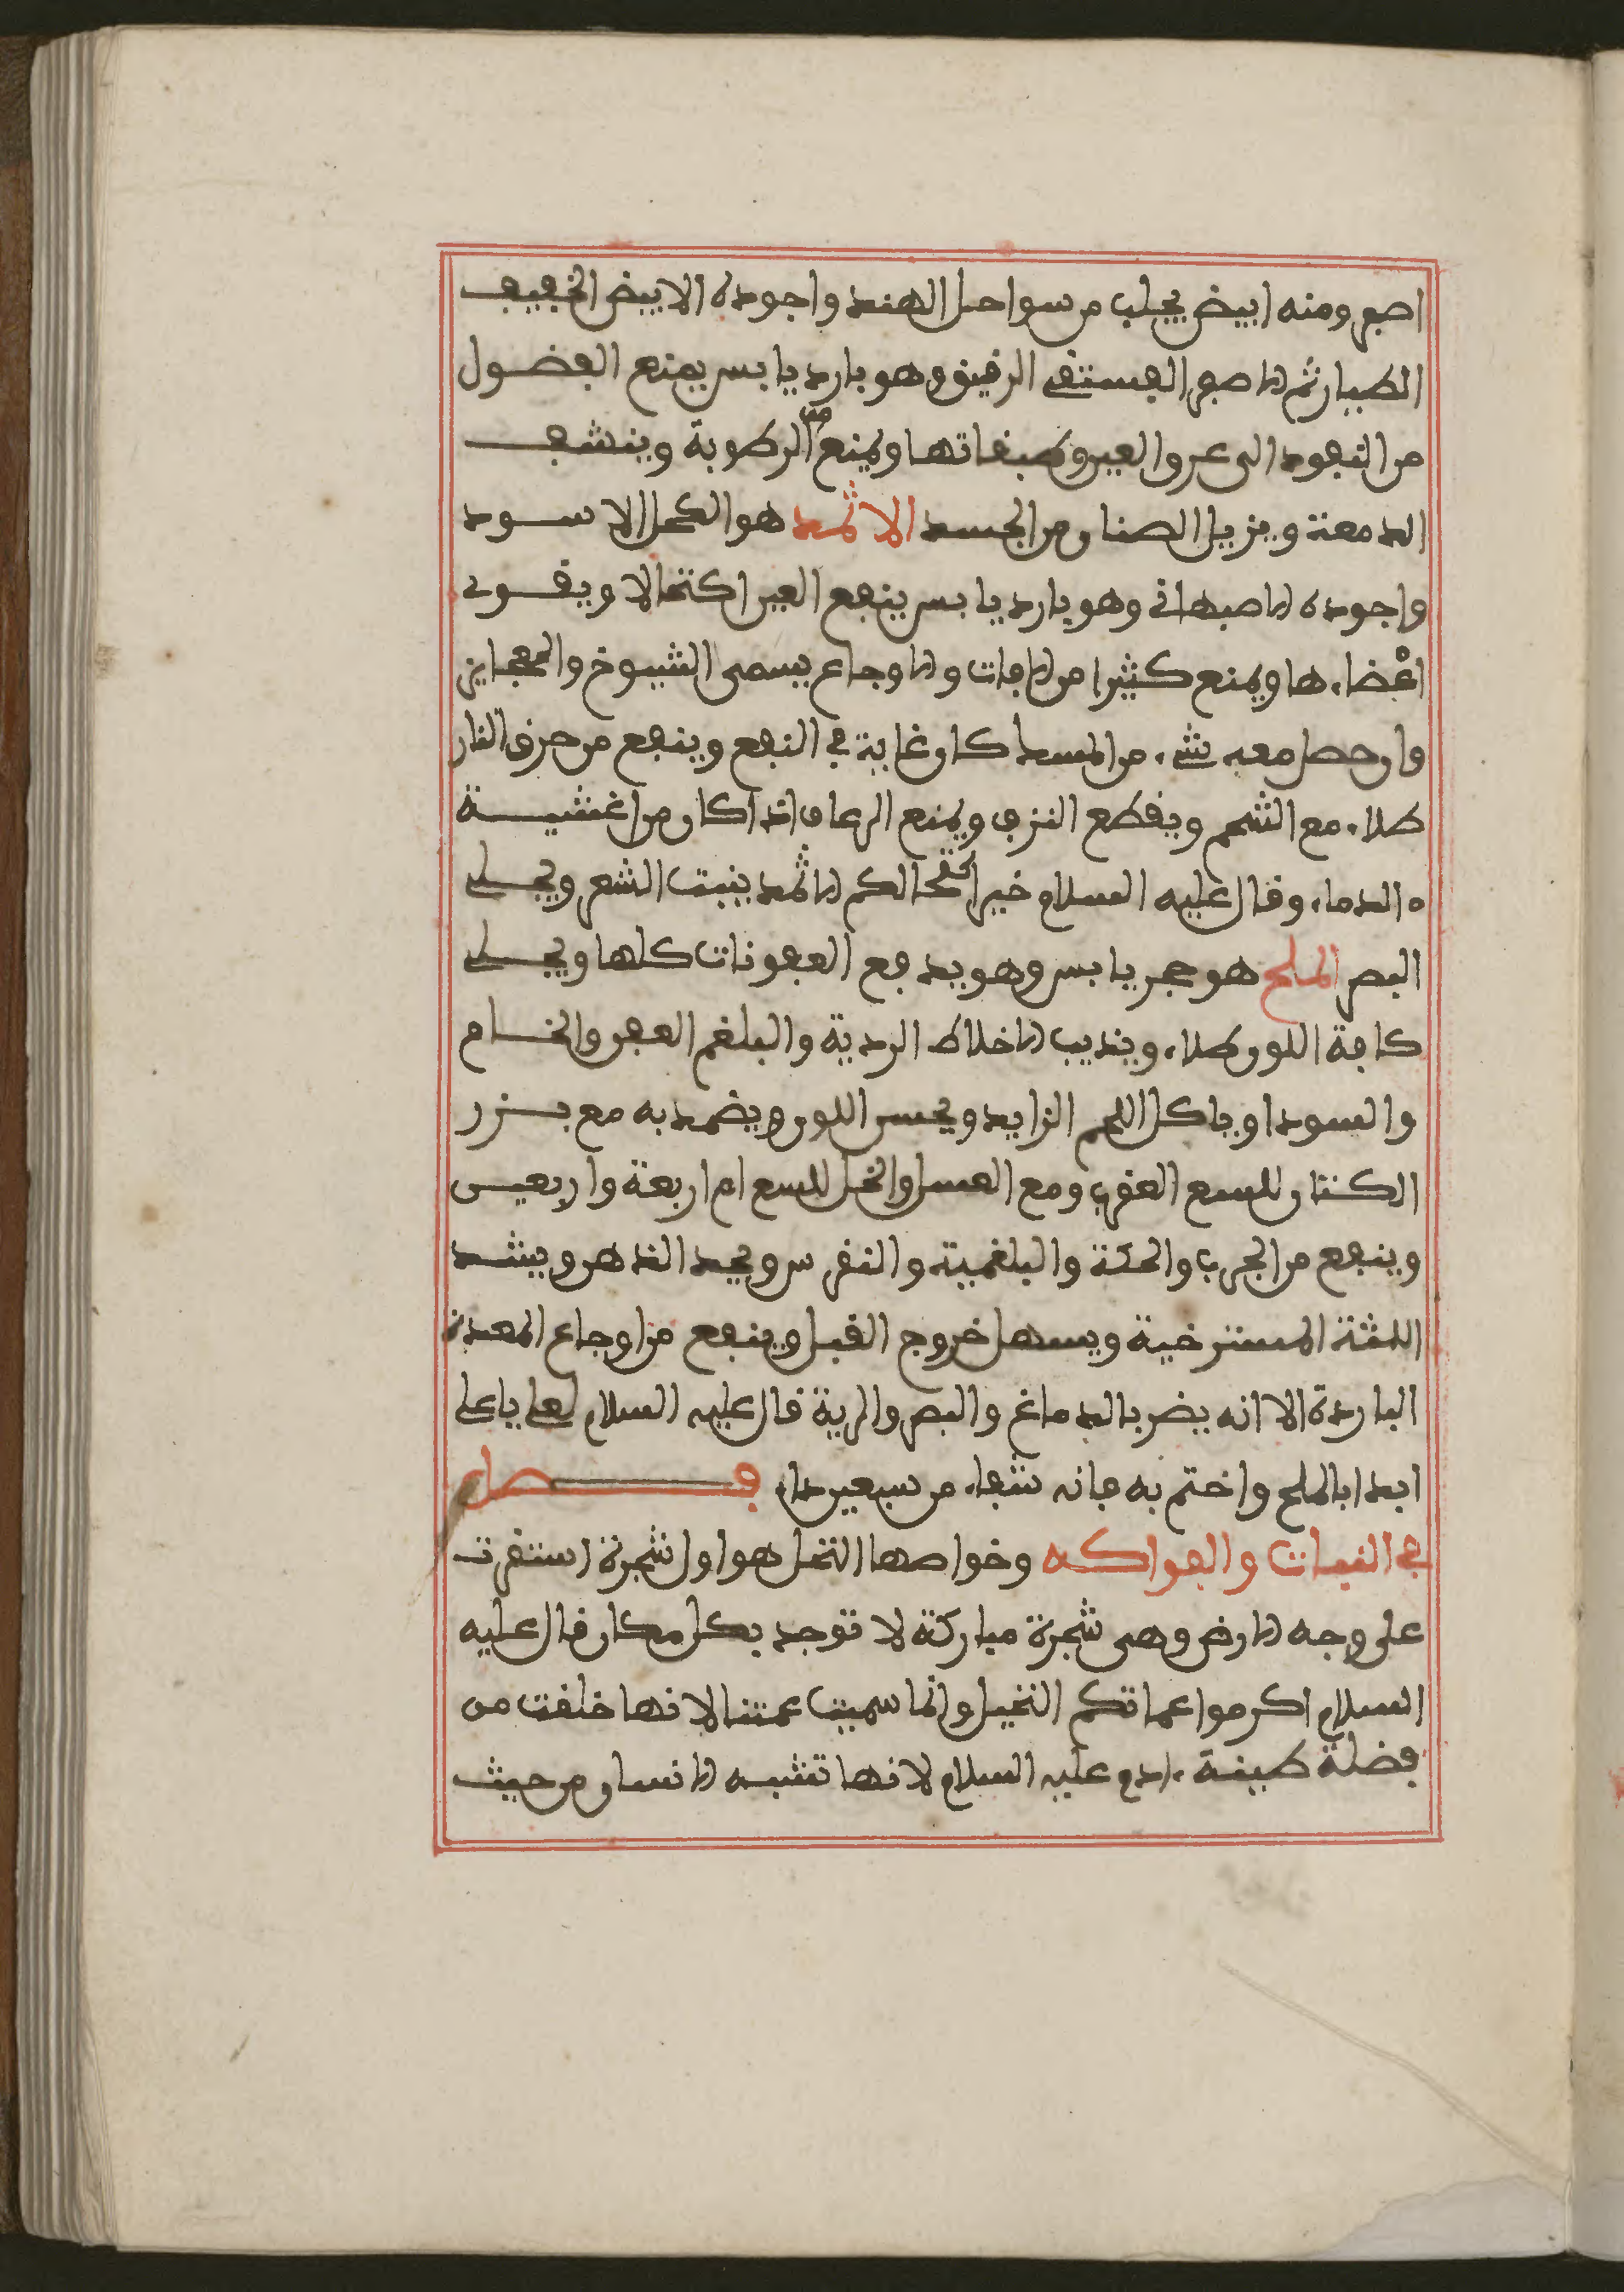 اصفر ومنه ابيض يجلب من سواحل الهند واجوده الابيض الخفيف
الطيار ثم الاصفر الفستقي الرقيق وهو بارد يابس يمنع الفضول
من النفود الى عروق العين وطبقاتها ويمنع من الرطوبة وينشف
الدمعة ويزيل الصنان من الجسد الاثمد هو الكحل الاسود
واجوده الاصبهاني وهو بارد يابس ينفع العين اكتحالا ويقوي
اعضاءها ويمنع كثيرا من الافات والاوجاع يسمى الشيوخ والعجايز
وان حصل معه شيء من المسك كان غاية في النفع وينفع من حرق النار
طلاء مع الشحم ويقطع النزف ويمنع الرعاف اذا كان من اغشية
الدماء وقال عليه السلام خير اكحالكم الاثمد ينبت الشعر ويجلي
البصر الملح هو حجر يابس وهو يدفع العفونات كلها ويجلي
كافة اللون طلاء ويذيب الاخلاط الردية والبلغم العفن والخام
والسودا وياكل اللحم الزايد ويحسن اللون ويضمد به مع بزر
الكتان للسع العقرب ومع العسل والخل للسع ام اربعة واربعين
وينفع من الجرب والحكة والبلغمية والنقرس ويحد الذهن ويشد
اللثة المسترخية ويسهل خروج القيل وينفع من اوجاع المعدة
الباردة الا انه يضر بالدماغ والبصر والرية قال عليه السلام لعلي يا علي
ابدا بالملح واختم به فانه شفاء من سبعين داء فصل
في النبات والفواكه وخواصها النخل هو اول شجرة استقرت
على وجه الارض وهي شجرة مباركة لا توجد بكل مكان قال عليه
السلام اكرموا عماتكم النخيل وانما سميت عمتنا لانها خلقت من
فضلة طينة ءادم عليه السلام لانها تشبه الانسان من حيث